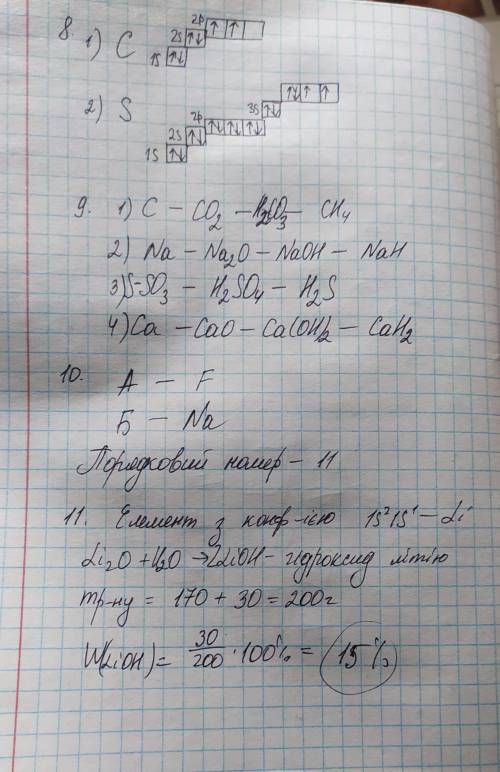 8. 1) C 1S ↑↓ 2S ↑↓ 2p ↑ ↑
2) S 1S ↑↓ 2S ↑↓ 2p ↑↓ ↑↓ ↑↓ 3S ↑↓ ↑↓ ↑ ↑
9. 1) C – CO₂ – H₂CO₃ – CH₄
2) Na – Na₂O – NaOH – NaH
3) S–SO₃ – H₂SO₄ – H₂S
4) Ca – CaO – Ca(OH)₂ – CaH₂
10. А – F
Б – Na
Порядковий номер – 11
11. Елемент з конф-ією 1S²1S¹ – Li
Li₂O + H₂O → 2LiOH – гідроксид літію
mр-ну = 170 + 30 = 200г
W(LiOH) = 30/200 · 100% = 15%